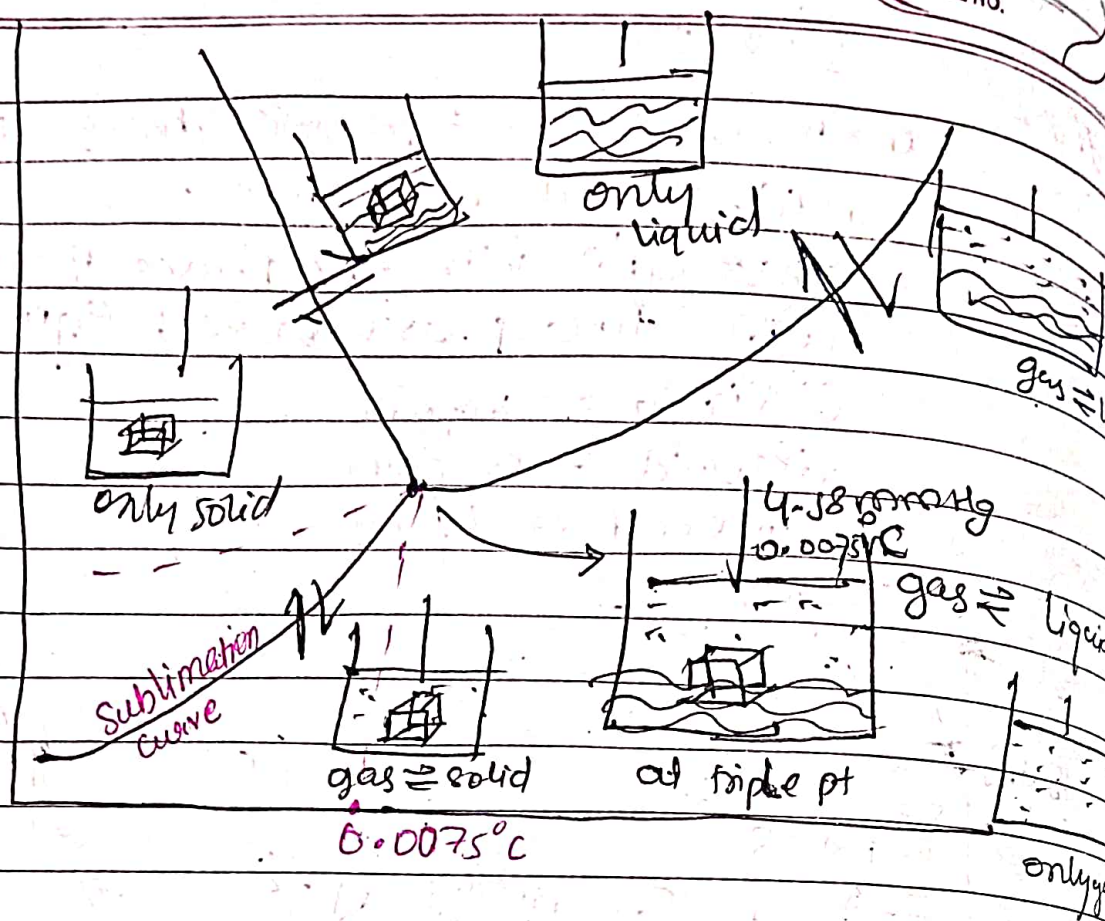 no.
only
liquid
gas ⇌
only solid
4.58 mmHg
0.0075°C
gas ⇌
Sublimation
curve
gas ⇌ solid
at triple pt
0.0075°C
only